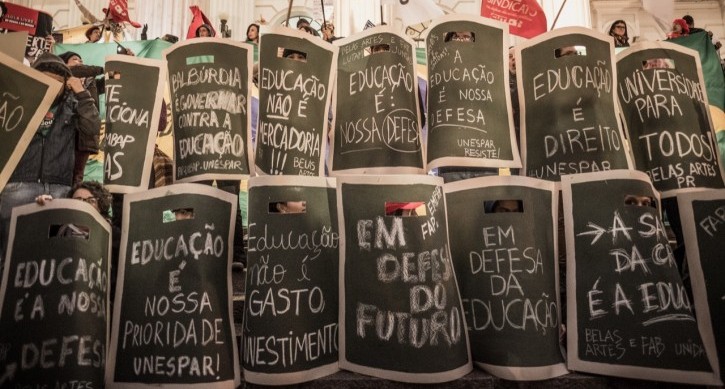 SINDICATO
ÇÃO
TE
CIONA
AS
BALBÚRDIA
É GOVERNAR
CONTRA A
EDUCAÇÃO
UNESPAR
EDUCAÇÃO
NÃO É
MERCADORIA
!!!
BELAS
EDUCAÇÃO
É:
NOSSA DEFESA
A
EDUCAÇÃO
É NOSSA
DEFESA
UNESPAR
RESISTE!
EDUCAÇÃO
É
DIREITO
UNESPAR
UNIVERSIDADE
PARA
TODOS!
BELAS ARTES
PR
EDUCAÇÃO
É A NOSSA
DEFESA
EDUCAÇÃO
É
NOSSA
PRIORIDADE
UNESPAR!
Educação
não é
GASTO,
INVESTIMENTO
EM
DEFESA
DO
FUTURO
EM
DEFESA
DA
EDUCAÇÃO
A SA
DA
É A EDU
BELAS
ARTES E FAB UNIDA